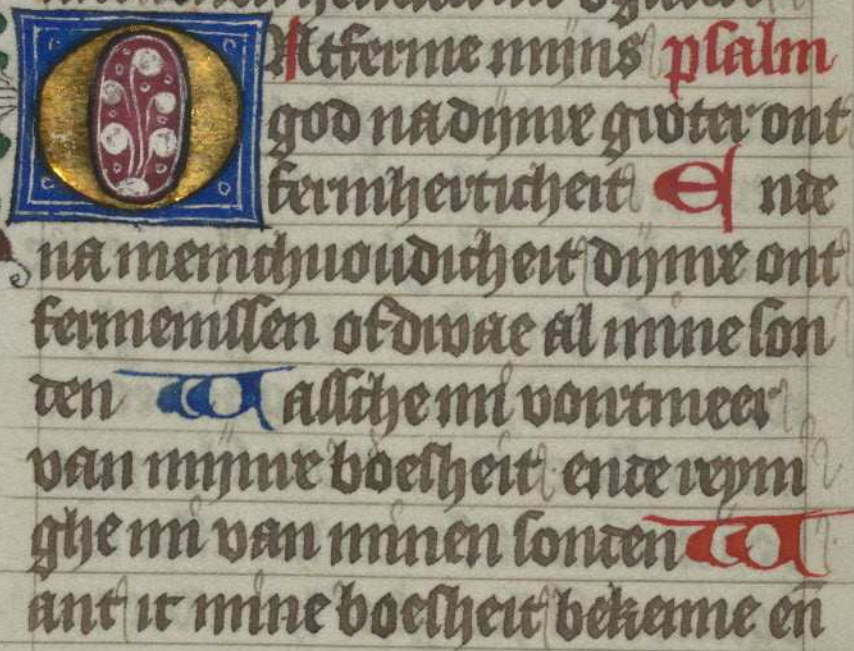 ONtferme mijns psalm
god na dijnre groter ont
fermherticheit Ende
na menichuoudicheit dijnre ont
fermenissen ofdwae al mine son
den Wassche mi vortmeer
van mijnre boesheit ende reyni
ghe mi van minen sonden W
ant ic mine boesheit bekenne en̄